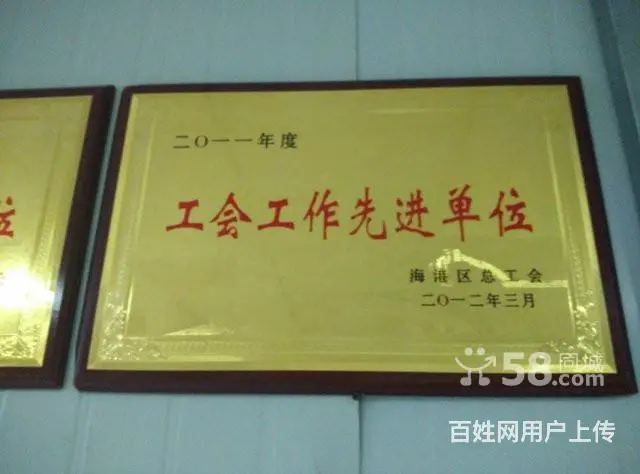 二〇一一年度
工会工作先进单位
海港区总工会
二〇一二年三月
位
58同城
百姓网用户上传